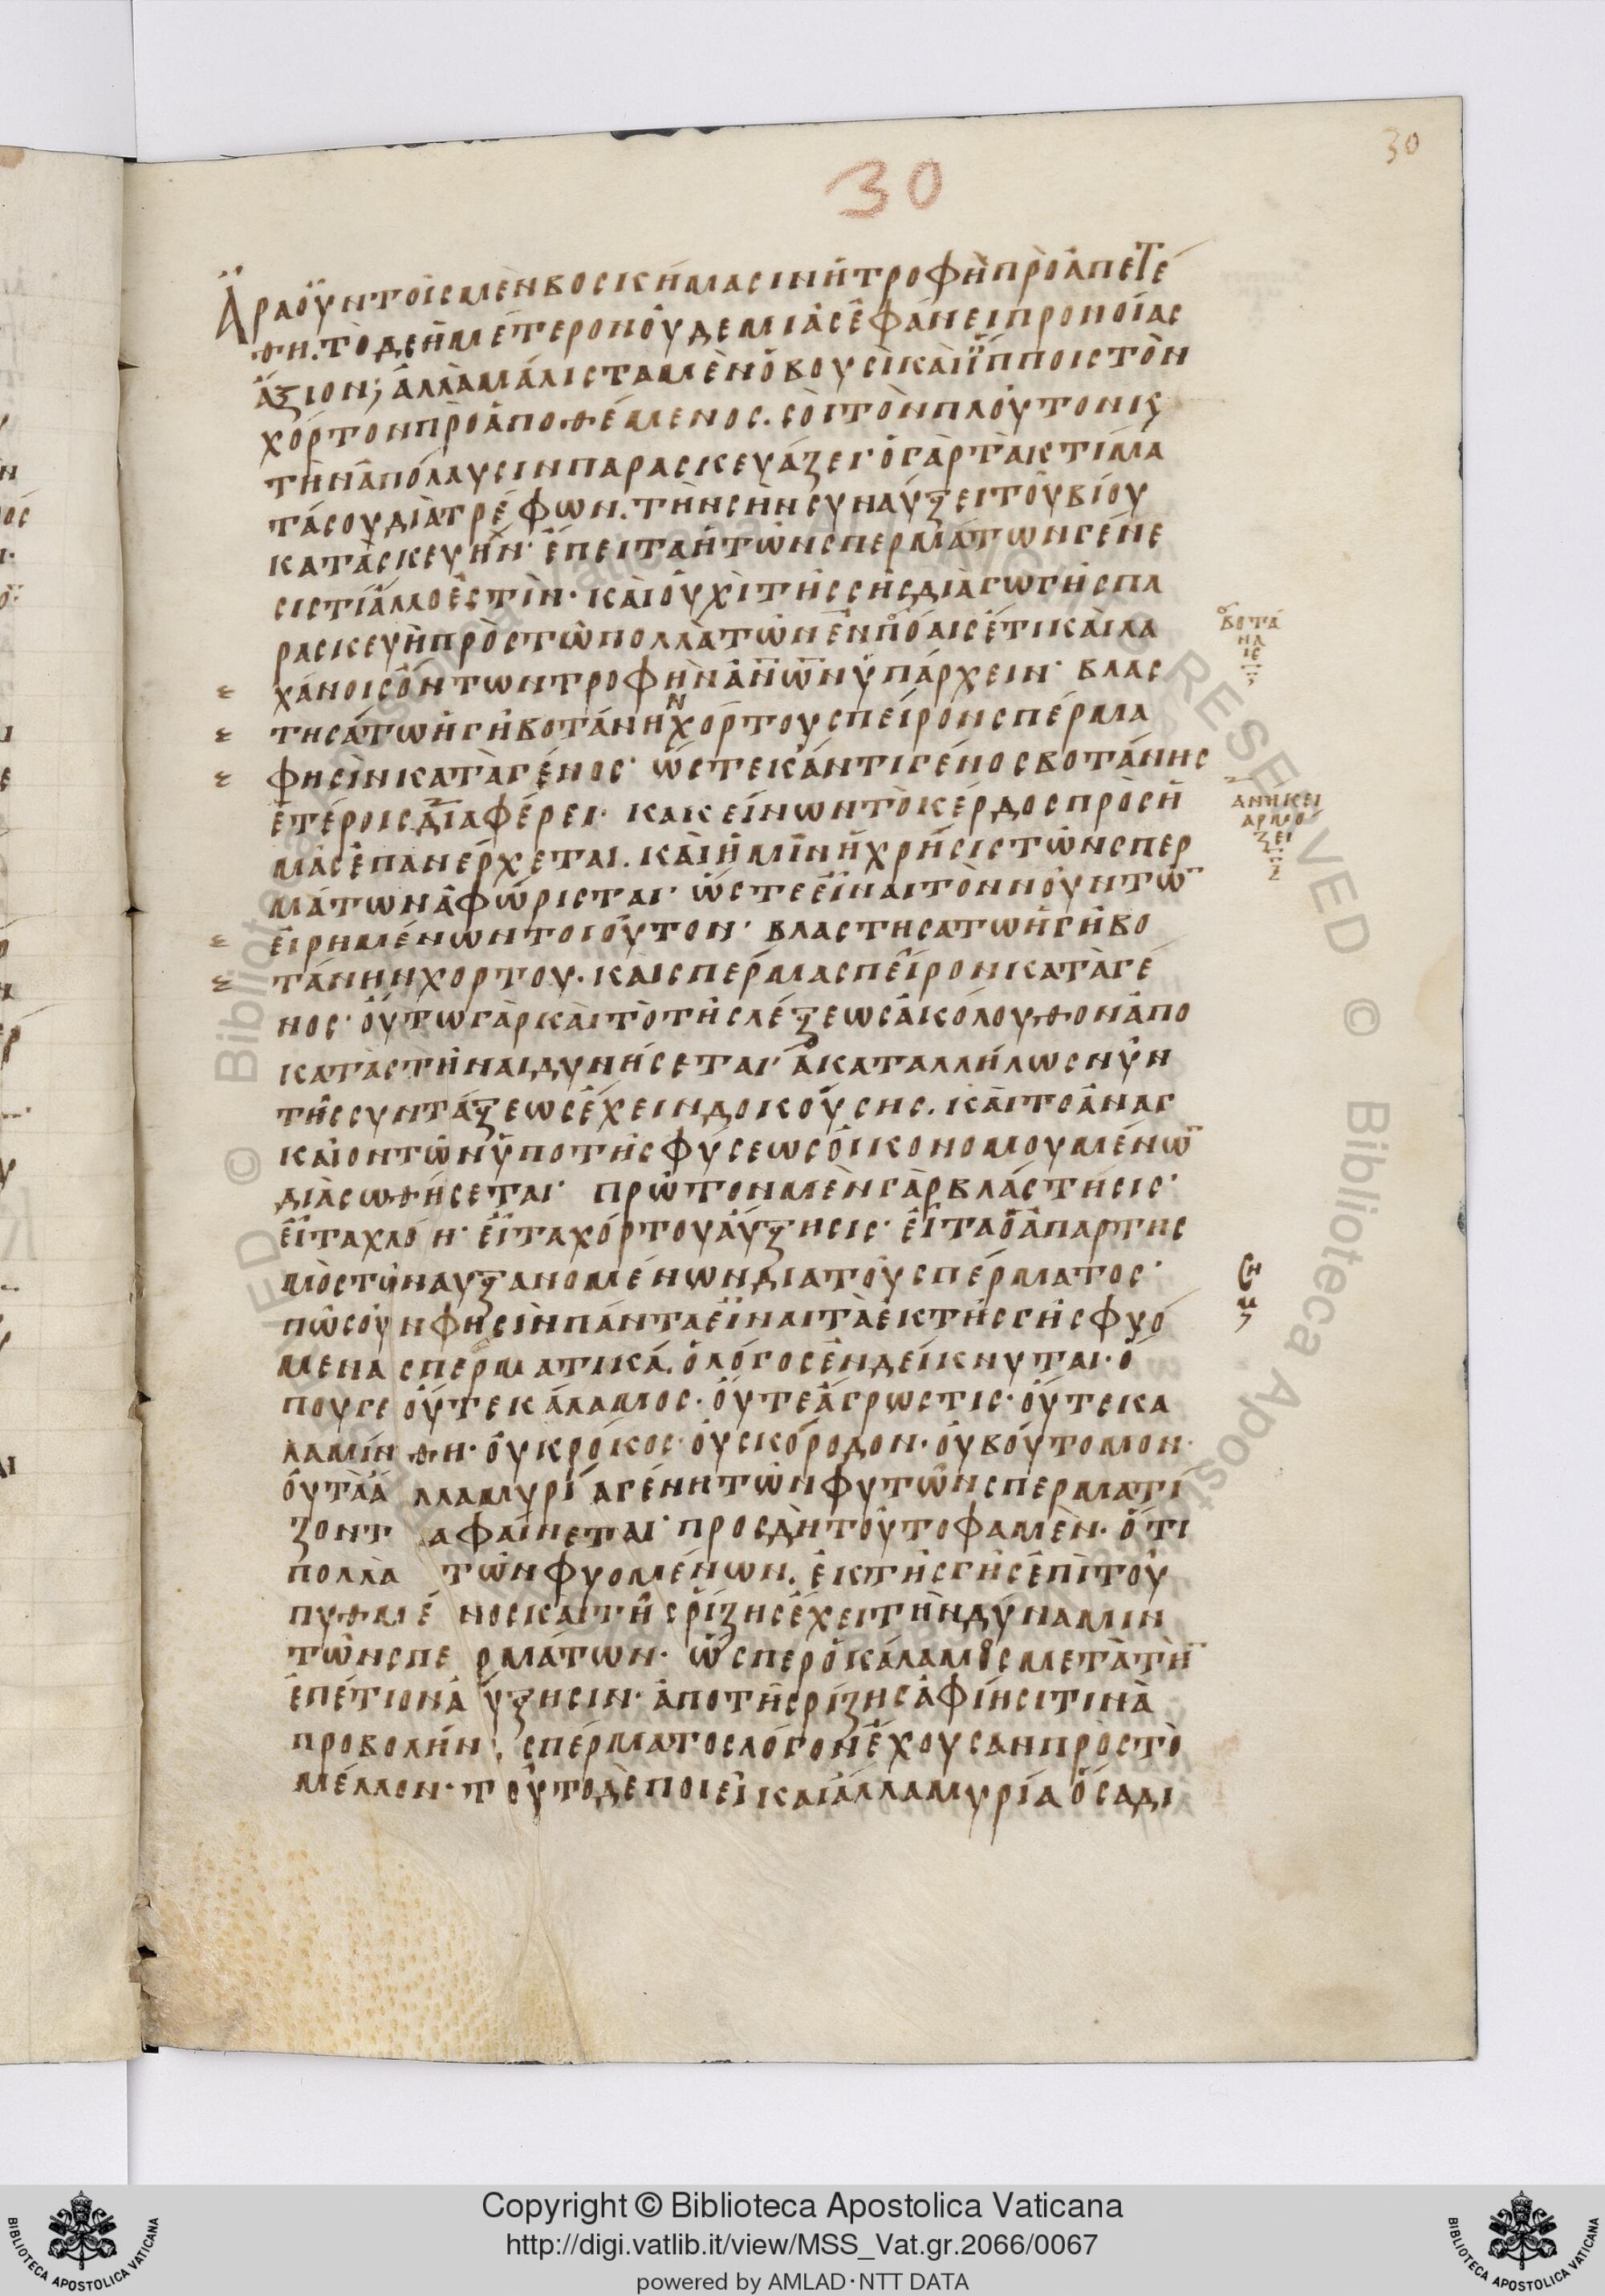 30
30
Ἄρα οὖν τοῖς μὲν βοσκήμασιν ἡ τροφὴ προαπετέ
θη. τὸ δὲ ἡμέτερον οὐδεμιᾶς ἐφάνει προνοίας
ἄξιον; ἀλλὰ μάλιστα μὲν ὁ βουσὶ καὶ ἵπποις τὸν
χόρτον προαποθέμενος. σοὶ τὸν πλοῦτον κ(αὶ)
τὴν ἀπόλαυσιν παρασκευάζει· ὁ γὰρ τὰ κτίμα
τά σου διατρέφων. τὴν σὴν συναύξει τοῦ βίου
κατασκευήν· ἔπειτα ἡ τῶν σπερμάτων γένε
σις τί ἄλλο ἐστὶν· καὶ οὐχὶ τῆς σῆς διαγωγῆς πα
ρασκευὴ πρὸς τῶ πολλὰ τῶν ἐν πόαις ἔτι καὶ λα
χάνοις ὄντων τροφὴν ἀν̅ω̅ν ὑπάρχειν· βλας
τησάτω ἡ γῆ βοτάνην χόρτου σπείρον σπέρμα
φησὶν κατὰ γένος· ὥστε κἄν τι γένος βοτάνης
ἑτέροις διαφέρει· κακείνων τὸ κέρδος πρὸς ἡ
μᾶς ἐπανέρχεται. καὶ ἡμῖν ἡ χρήσις τῶν σπερ
μάτων ἀφώρισται· ὥστε εἶναι τὸν νοῦν τῶ̅
εἰρημένων τοιοῦτον· βλαστησατω ἡ γῆ βο
τάνην χορτου. καὶ σπέρμα σπεῖρον κατὰ γέ
νος· οὕτω γὰρ καὶ τὸ τῆς λέξεως ἀκόλουθον ἀπο
καταστῆναι δυνήσεται· ἀκαταλλήλως νῦν
τῆς συντάξεως ἔχειν δοκούσης. καὶ τὸ ἀναγ
καῖον τῶν ὑπο τῆς φύσεως οἰκονομουμένω̅
διασωθήσεται· πρῶτον μὲν γὰρ βλάστησις·
εἶτα χλόη· εἶτα χόρτου αὔξησις· εἶτα ὁ ἀπαρτης
μὸς τῶν αυξανομένων δια τοῦ σπέρματος·
πῶς οὖν φησὶν πάντα εἶναι τὰ ἐκ τῆς γῆς φυό
μενα σπερματικά. ὁ λόγος ἐνδείκνυται· ὅ
που γε οὔτε κάλαμος· οὔτε ἄγρωστις· οὔτε κα
λαμίνθη· οὐ κρόκος· οὐ σκόροδον· οὐ βούτομον·
οὐ τὰ ἄλλα μυρία γένη τῶν φυτῶν σπερματί
ζοντα φαίνεται· προς δὴ τοῦτο φαμὲν· ὅτι
πολλὰ τῶν φυομένων. ἐκ τῆς γῆς ἐπὶ τοῦ
πυθμένος καὶ τῆς ῥίζης ἔχει τὴν δύναμιν
τῶν σπερμάτων· ὥσπερ ὁ κάλαμος μετὰ τὴ̅
ἐπέτιον αὔξησιν· ἀπο τῆς ρίζης ἀφίησι τινὰ
προβολὴν, σπέρματος λόγον ἔχουσαν πρὸς τὸ
μέλλον· τοῦτο δὲ ποιεῖ καὶ ἄλλα μυρία ὅσα δι
βοτά
ναις
ἀνήκει
ἁρμό
ζει
ση
μ
Copyright © Biblioteca Apostolica Vaticana
http://digi.vatlib.it/view/MSS_Vat.gr.2066/0067
powered by AMLAD·NTT DATA
BIBLIOTECA APOSTOLICA VATICANA
BIBLIOTECA APOSTOLICA VATICANA